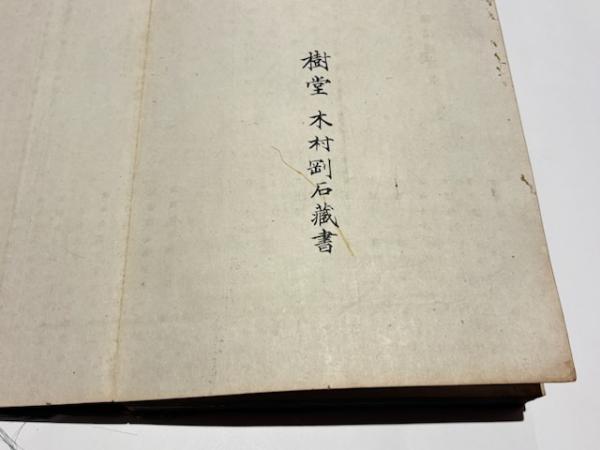 樹堂 木村剛石藏書